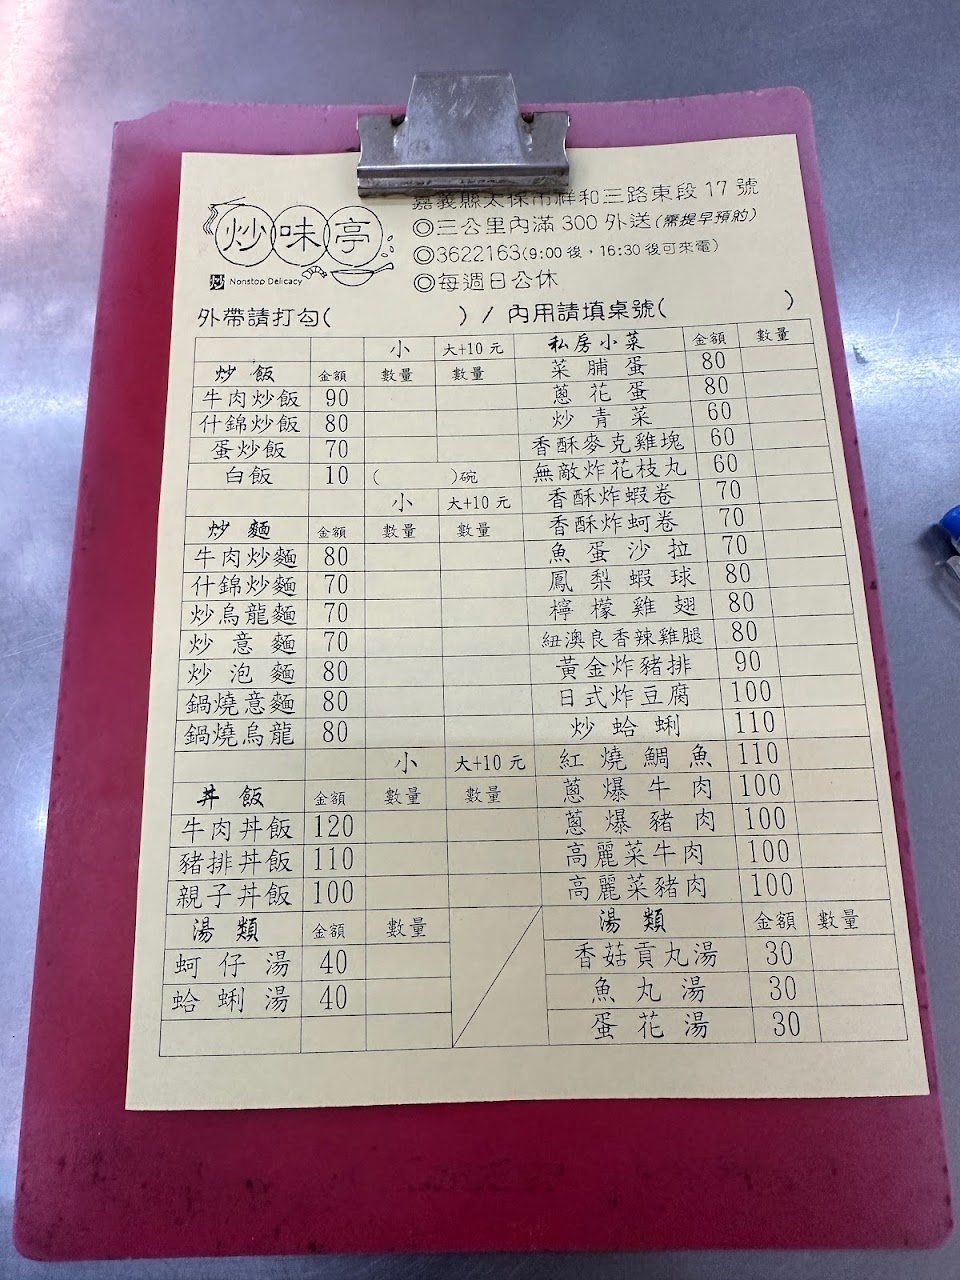 嘉義縣太保市祥和三路東段17號
炒味亭
炒 Nonstop Delicacy
◎三公里內滿300外送(需提早預約)
◎3622163(9:00後,16:30後可來電)
◎每週日公休
外帶請打勾( ) / 內用請填桌號( )
小 大+10元
炒飯 金額 數量 數量
牛肉炒飯 90
什錦炒飯 80
蛋炒飯 70
白飯 10 ( )碗
小 大+10元
炒麵 金額 數量 數量
牛肉炒麵 80
什錦炒麵 70
炒烏龍麵 70
炒意麵 70
炒泡麵 80
鍋燒意麵 80
鍋燒烏龍 80
小 大+10元
丼飯 金額 數量 數量
牛肉丼飯 120
豬排丼飯 110
親子丼飯 100
湯類 金額 數量
蚵仔湯 40
蛤蜊湯 40
私房小菜 金額 數量
菜脯蛋 80
蔥花蛋 80
炒青菜 60
香酥麥克雞塊 60
無敵炸花枝丸 60
香酥炸蝦卷 70
香酥炸蚵卷 70
魚蛋沙拉 70
鳳梨蝦球 80
檸檬雞翅 80
紐澳良香辣雞腿 80
黃金炸豬排 90
日式炸豆腐 100
炒蛤蜊 110
紅燒鯛魚 110
蔥爆牛肉 100
蔥爆豬肉 100
高麗菜牛肉 100
高麗菜豬肉 100
湯類 金額 數量
香菇貢丸湯 30
魚丸湯 30
蛋花湯 30